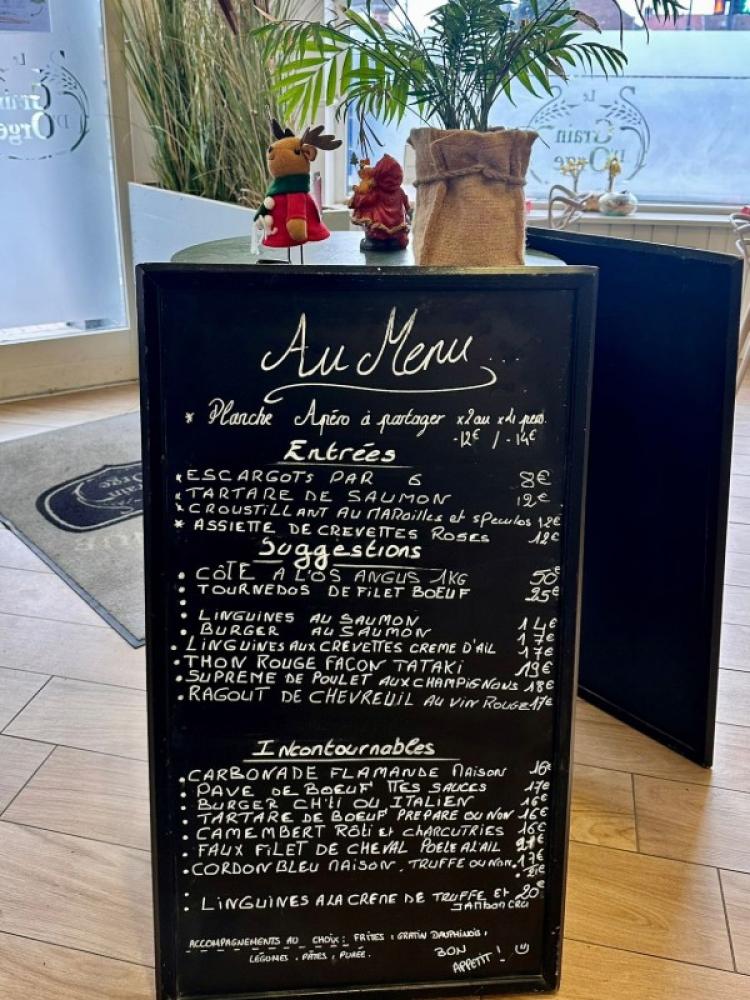 Le
Grain
D'Orge
Le
Grain
D'Orge
Au Menu ...
* Planche Apéro à partager x2 ou x4 pers.
-12€ / -14€
Entrées
* ESCARGOTS PAR 6 8€
* TARTARE DE SAUMON 12€
* CROUSTILLANT AU MAROILLES et SPECULOS 12€
* ASSIETTE DE CREVETTES ROSES 12€
Suggestions
• CÔTE A L'OS ANGUS 1KG 50€
• TOURNEDOS DE FILET BOEUF 25€
• LINGUINES AU SAUMON 14€
• BURGER AU SAUMON 17€
• LINGUINES AUX CREVETTES CREME D'AIL 17€
• THON ROUGE FACON TATAKI 19€
• SUPREME DE POULET AUX CHAMPIGNONS 18€
• RAGOUT DE CHEVREUIL AU VIN ROUGE 17€
Incontournables
• CARBONADE FLAMANDE MAISON 16€
• PAVE DE BOEUF TTES SAUCES 17€
• BURGER CH'TI OU ITALIEN 16€
• TARTARE DE BOEUF PREPARE OU NON 16€
• CAMEMBERT RÔti et CHARCUTRIES 16€
• FAUX FILET DE CHEVAL POELE A L'AIL 21€
• CORDON BLEU MAISON, TRUFFE OU NON. 17€
• LINGUINES A LA CREME DE TRUFFE ET 20€
JAMBON CRU
ACCOMPAGNEMENTS AU CHOIX : FRITES, GRATIN DAUPHINOIS,
LEGUMES, PÂTES, PUREE.
BON
APPETIT !